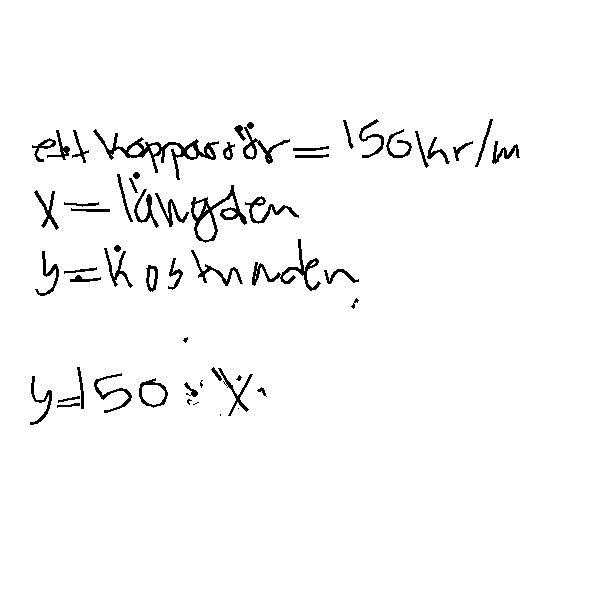 ett kopparrör = 150 kr/m
x = längden
y = kostnaden
y = 150 · x